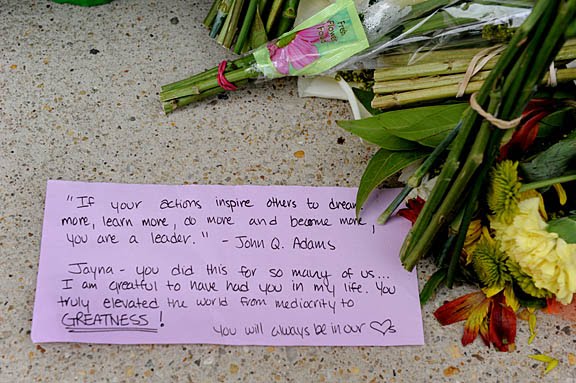 Fresh
Flower
Food
"If your actions inspire others to dream
more, learn more, do more and become more,
you are a leader." - John Q. Adams
Jayna - you did this for so many of us...
I am greatful to have had you in my life. You
truly elevated the world from mediocrity to
GREATNESS!
You will always be in our ♡s